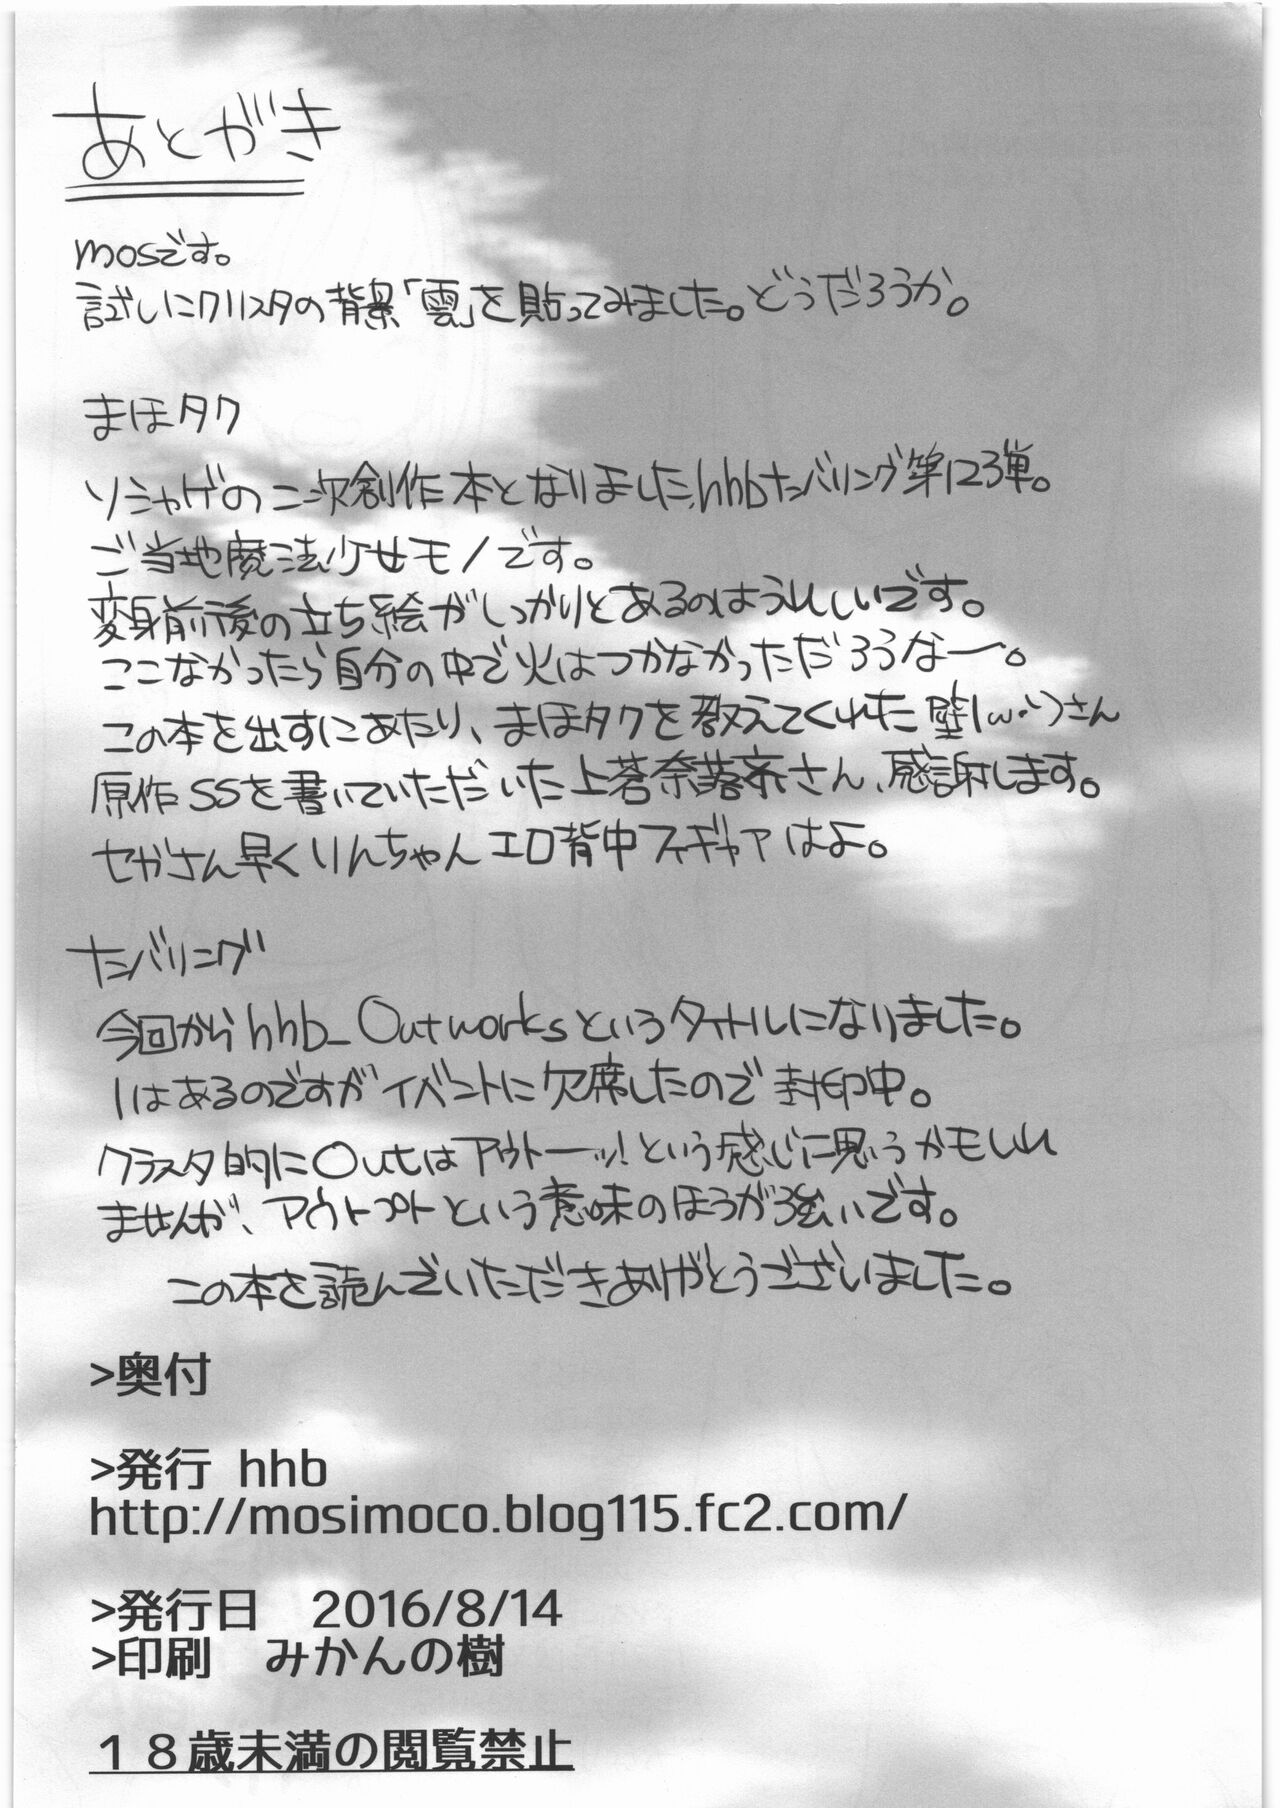 あとがき
mosです。
試しにクリスタの背景「雲」を貼ってみました。どうだろうか。
まほタク
ソシャゲの二次創作本となりました、hhbナンバリング第123弾。
ご当地魔法少女モノです。
変身前後の立ち絵がしっかりとあるのはうれしいです。
ここなかったら自分の中で火はつかなかっただろうなー。
この本を出すにあたり、まほタクを教えてくれた壁|ω・)さん
原作SSを書いていただいた上蒼奈落さん、感謝します。
セガさん早くりんちゃんエロ背中フィギャアはよ。
ナンバリング
今回からhhb_Outworksというタイトルになりました。
1はあるのですがイベントに欠席したので封印中。
クラスタ的にOutはアウトーッ!という感じに思うかモしれ
ませんが、アウトプットという意味のほうが強いです。
この本を読んでいただきありがとうございました。
>奥付
>発行 hhb
http://mosimoco.blog115.fc2.com/
>発行日　2016/8/14
>印刷　みかんの樹
１８歳未満の閲覧禁止